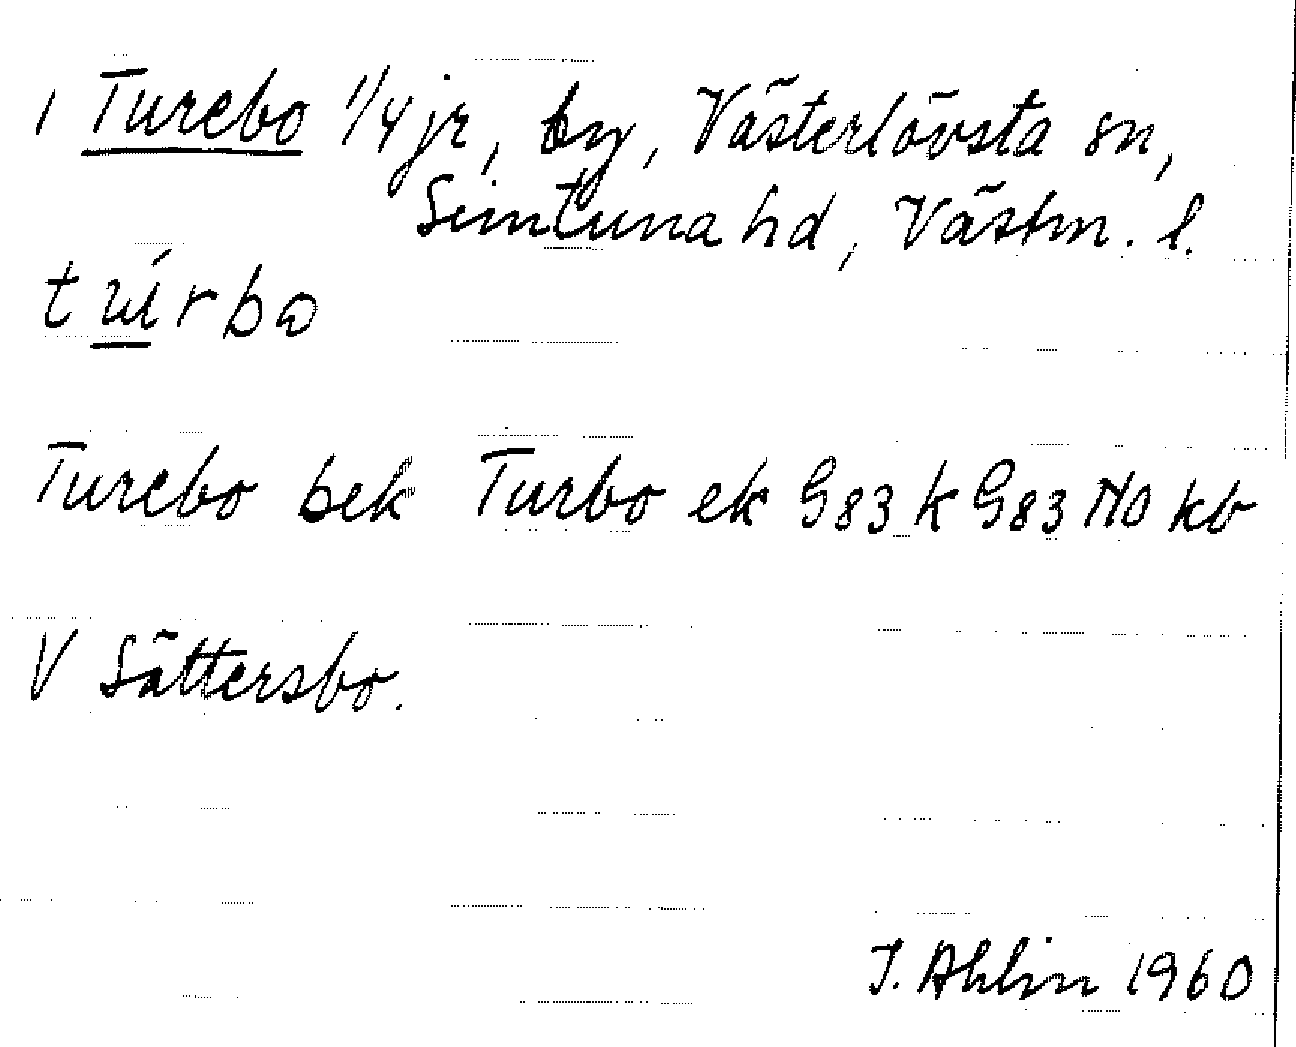 1 Turebo 1/4 jr, by, Västerlövsta sn,
Simtuna hd, Västm. l.
Turebo bek Turbo ek G83 k G83 NO kb
V Sättersbo.
J. Ahlin 1960